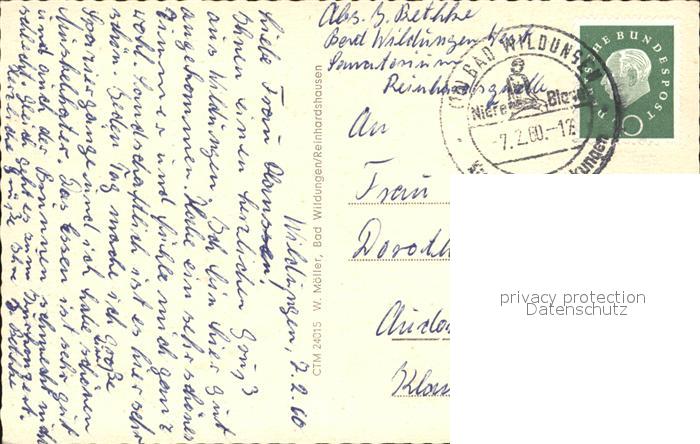 Abs. G. Bethke
Bad Wildungen
Sanatorium
Reinhardsquelle
(16) BAD WILDUNGEN
Niere Blase
-7.2.60.-12
kungen
DEUTSCHE BUNDESPOST
10
An
Frau
Doroth
Klau
privacy protection
Datenschutz
CTM 24015 W. Möller, Bad Wildungen/Reinhardshausen
Wildungen, 7.2.60
Liebe Frau
Ihnen einen herzlichen Gruß
aus Wildungen. Ich bin hier gut
angekommen. Habe ein sehr schönes
Zimmer und fühle mich ganz
wohl. Landschaftlich ist es hier sehr
schön. Jeden Tag mache ich große
Spaziergänge und ich habe schönen
Muskelkater. Das Essen ist sehr gut
und auch der Brunnen schmeckt nicht
schlecht. geht es zum Kurkonzert.